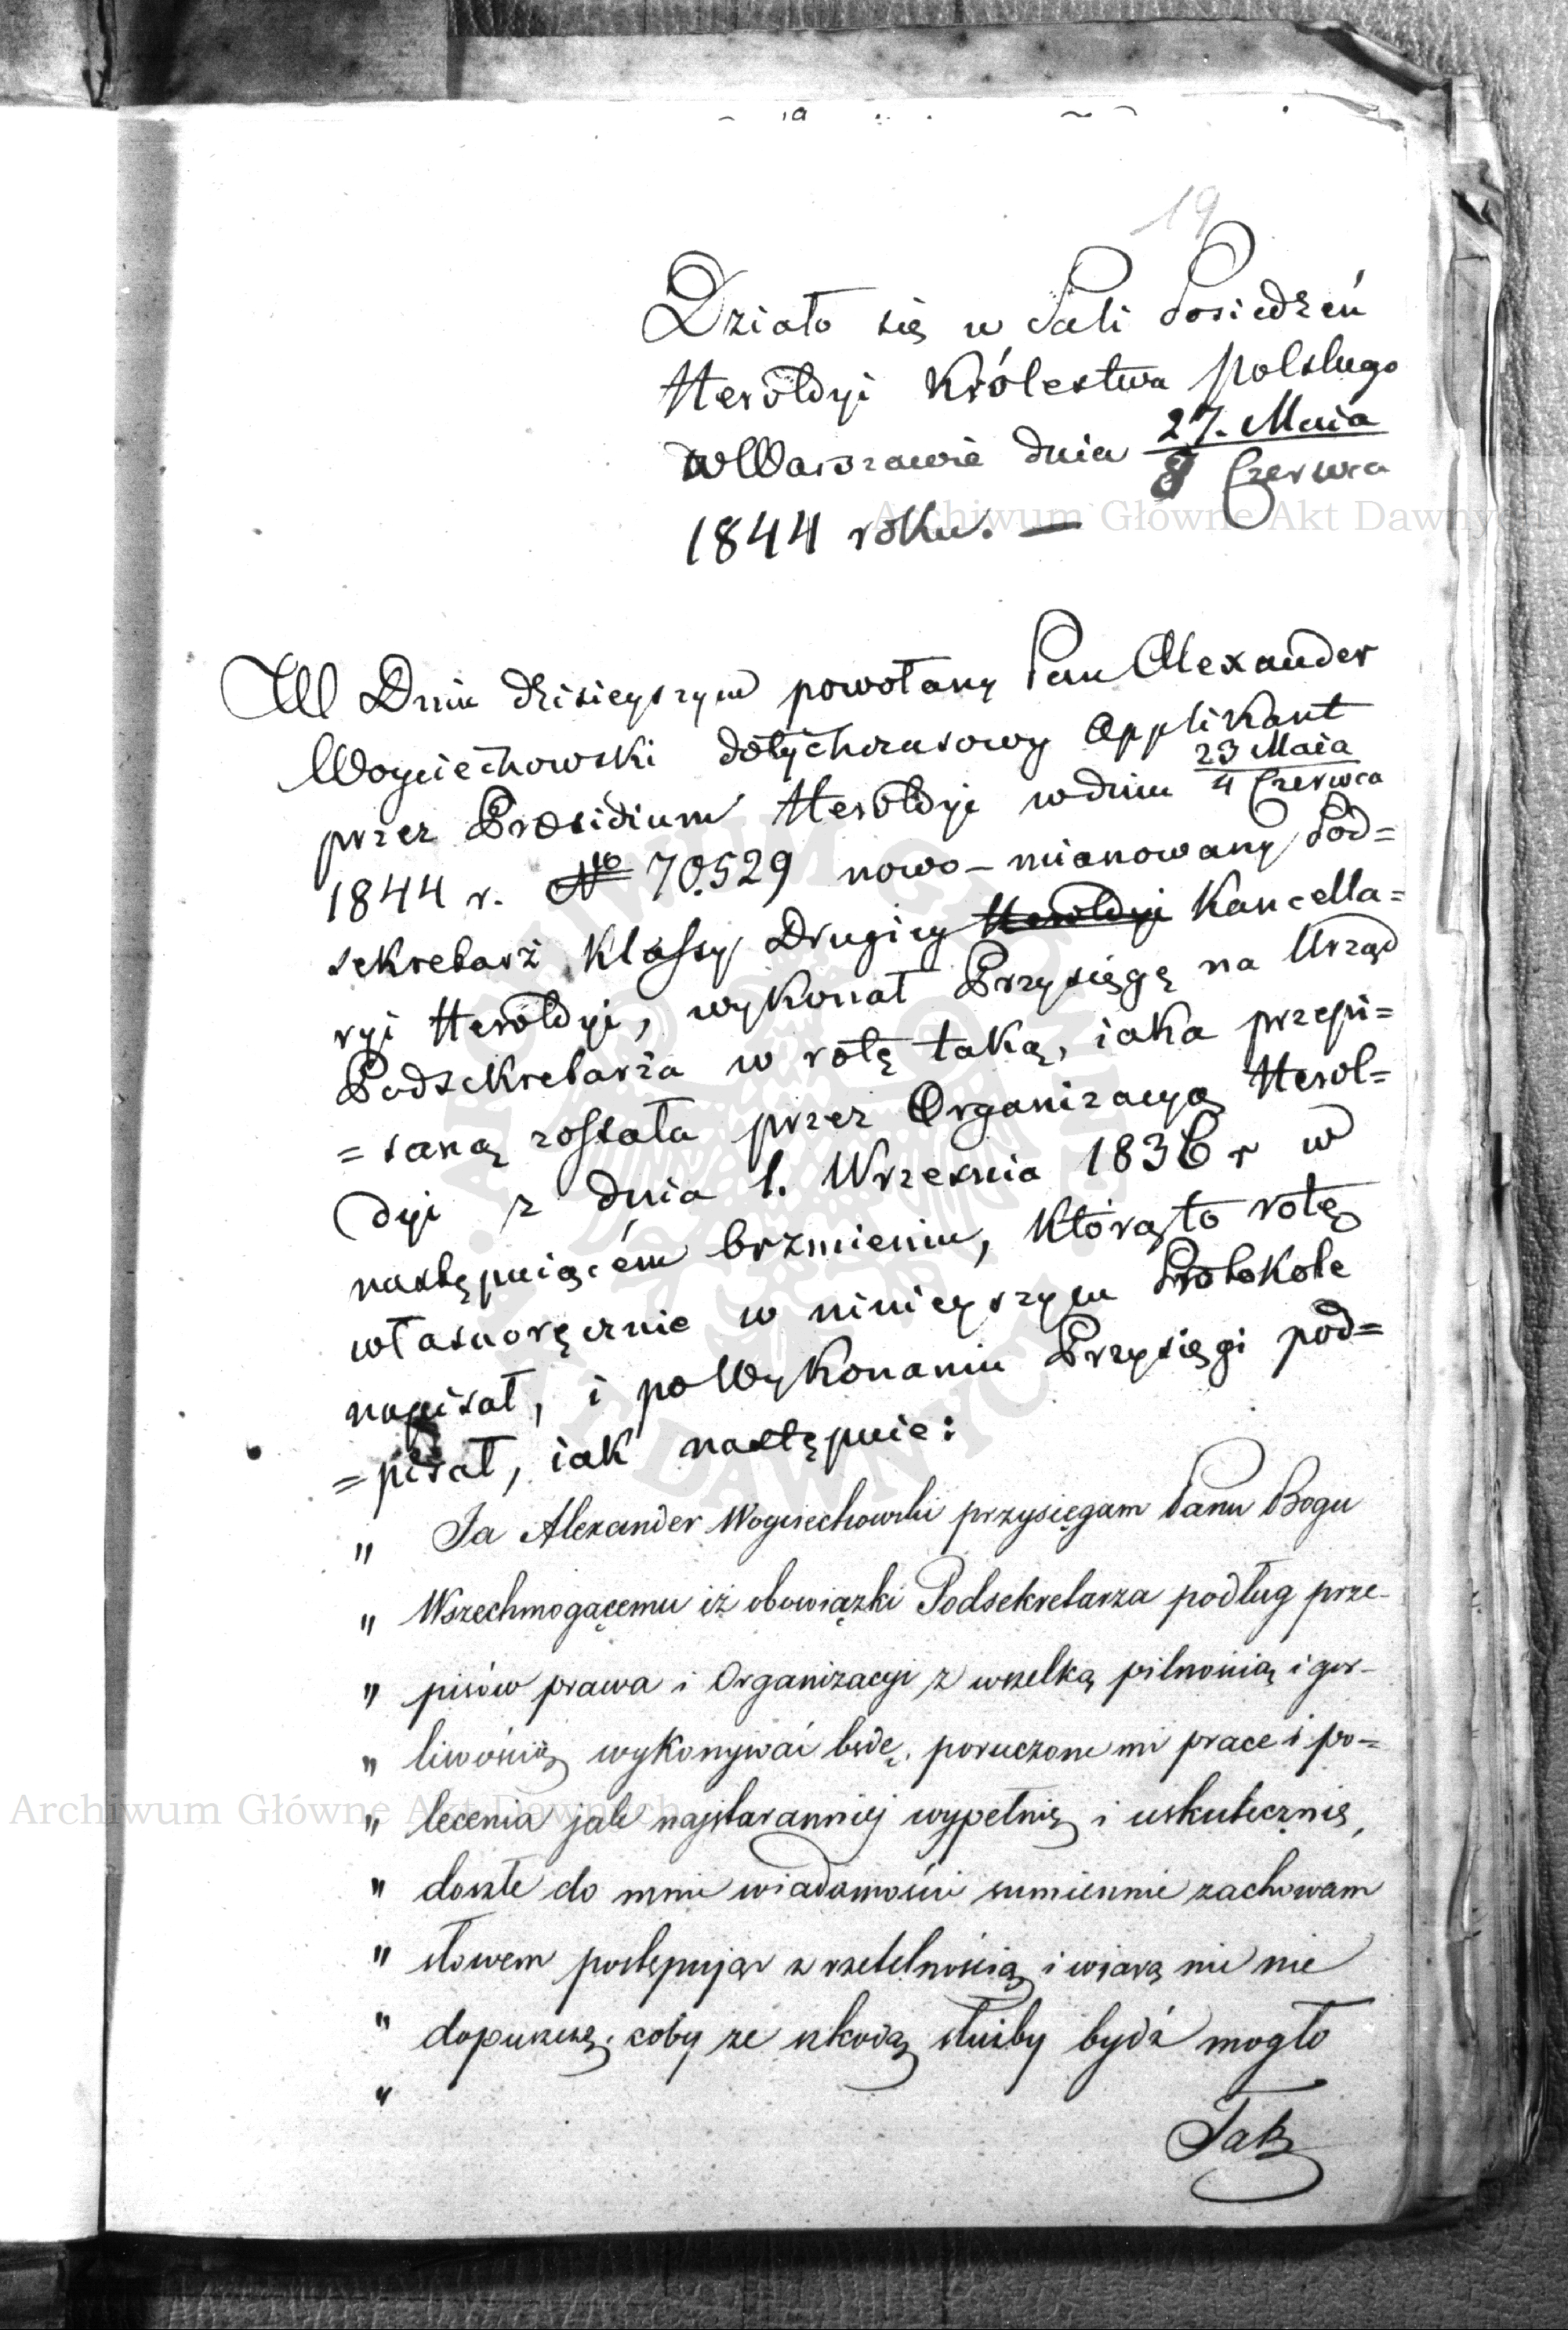 19
Działo się w Sali Posiedzeń
Heroldyi Królestwa Polskiego
w Warszawie dnia 27. Maia / 8 Czerwca
1844 roku. —
W Dniu dzisieyszym powołany Pan Alexander
Woyciechowski dotychczasowy Applikant
przez Prezidium Heroldyi w dniu 23 Maia / 4 Czerwca
1844 r. No 70.529 nowo-mianowany Pod=
sekretarz Klassy Drugiey Heroldyi Kancella=
ryi Heroldyi, wykonał Przysięgę na Urząd
Podsekretarza w rotę taką, iaka przepi=
=saną została przez Organizacyą Herol=
dyi z dnia 1. Września 1836 r w
następuiącém brzmieniu, którąto rotę
własnoręcznie w ninieyszym Protokole
napisał, i po Wykonaniu Przysięgi pod=
=pisał, iak następuie:
„ Ja Alexander Woyciechowski przysięgam Panu Bogu
„ Wszechmogącemu iż obowiązki Podsekretarza podług prze-
„ pisów prawa i Organizacyi z wszelką pilnością i gor-
„ liwością wykonywać będę, poruczone mi prace i po=
„ lecenia jak najstaranniej wypełnię i uskutecznię,
„ doszłe do mnie wiadomości sumiennie zachowam
„ słowem postępując z rzetelnością i wiarą nic nie
„ dopuszczę, coby ze szkodą służby bydź mogło
„
Tak
Archiwum Główne Akt Dawnych
Archiwum Główne Akt Dawnych
ARCHIWUM GŁÓWNE AKT DAWNYCH